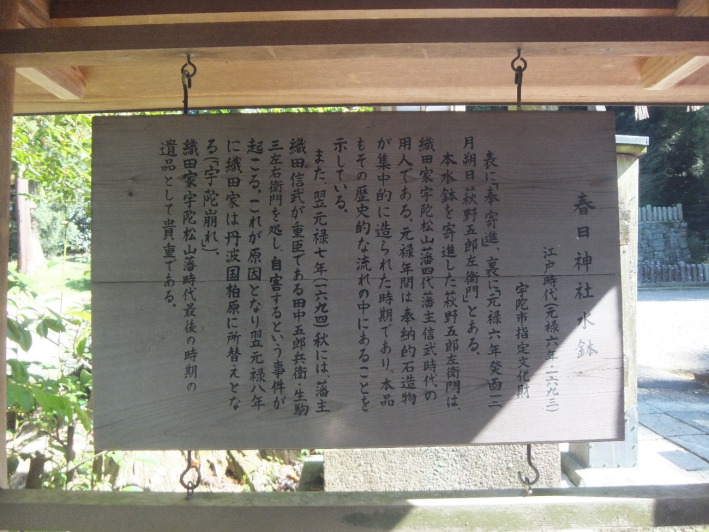 春日神社水鉢
江戸時代(元禄六年・一六九三)
宇陀市指定文化財
表に「奉寄進」、裏に「元禄六年癸酉三
月朔日萩野五郎左衛門」とある。
本水鉢を寄進した萩野五郎左衛門は、
織田家宇陀松山藩四代藩主信武時代の
用人である。元禄年間は奉納的石造物
が集中的に造られた時期であり、本品
もその歴史的な流れの中にあることを
示している。
また、翌元禄七年(一六九四)秋には、藩主
織田信武が重臣である田中五郎兵衛・生駒
三左右衛門を処し、自害するという事件が
起こる。これが原因となり翌元禄八年
に織田家は丹波国柏原に所替えとな
る(「宇陀崩れ」)。
織田家宇陀松山藩時代最後の時期の
遺品として貴重である。